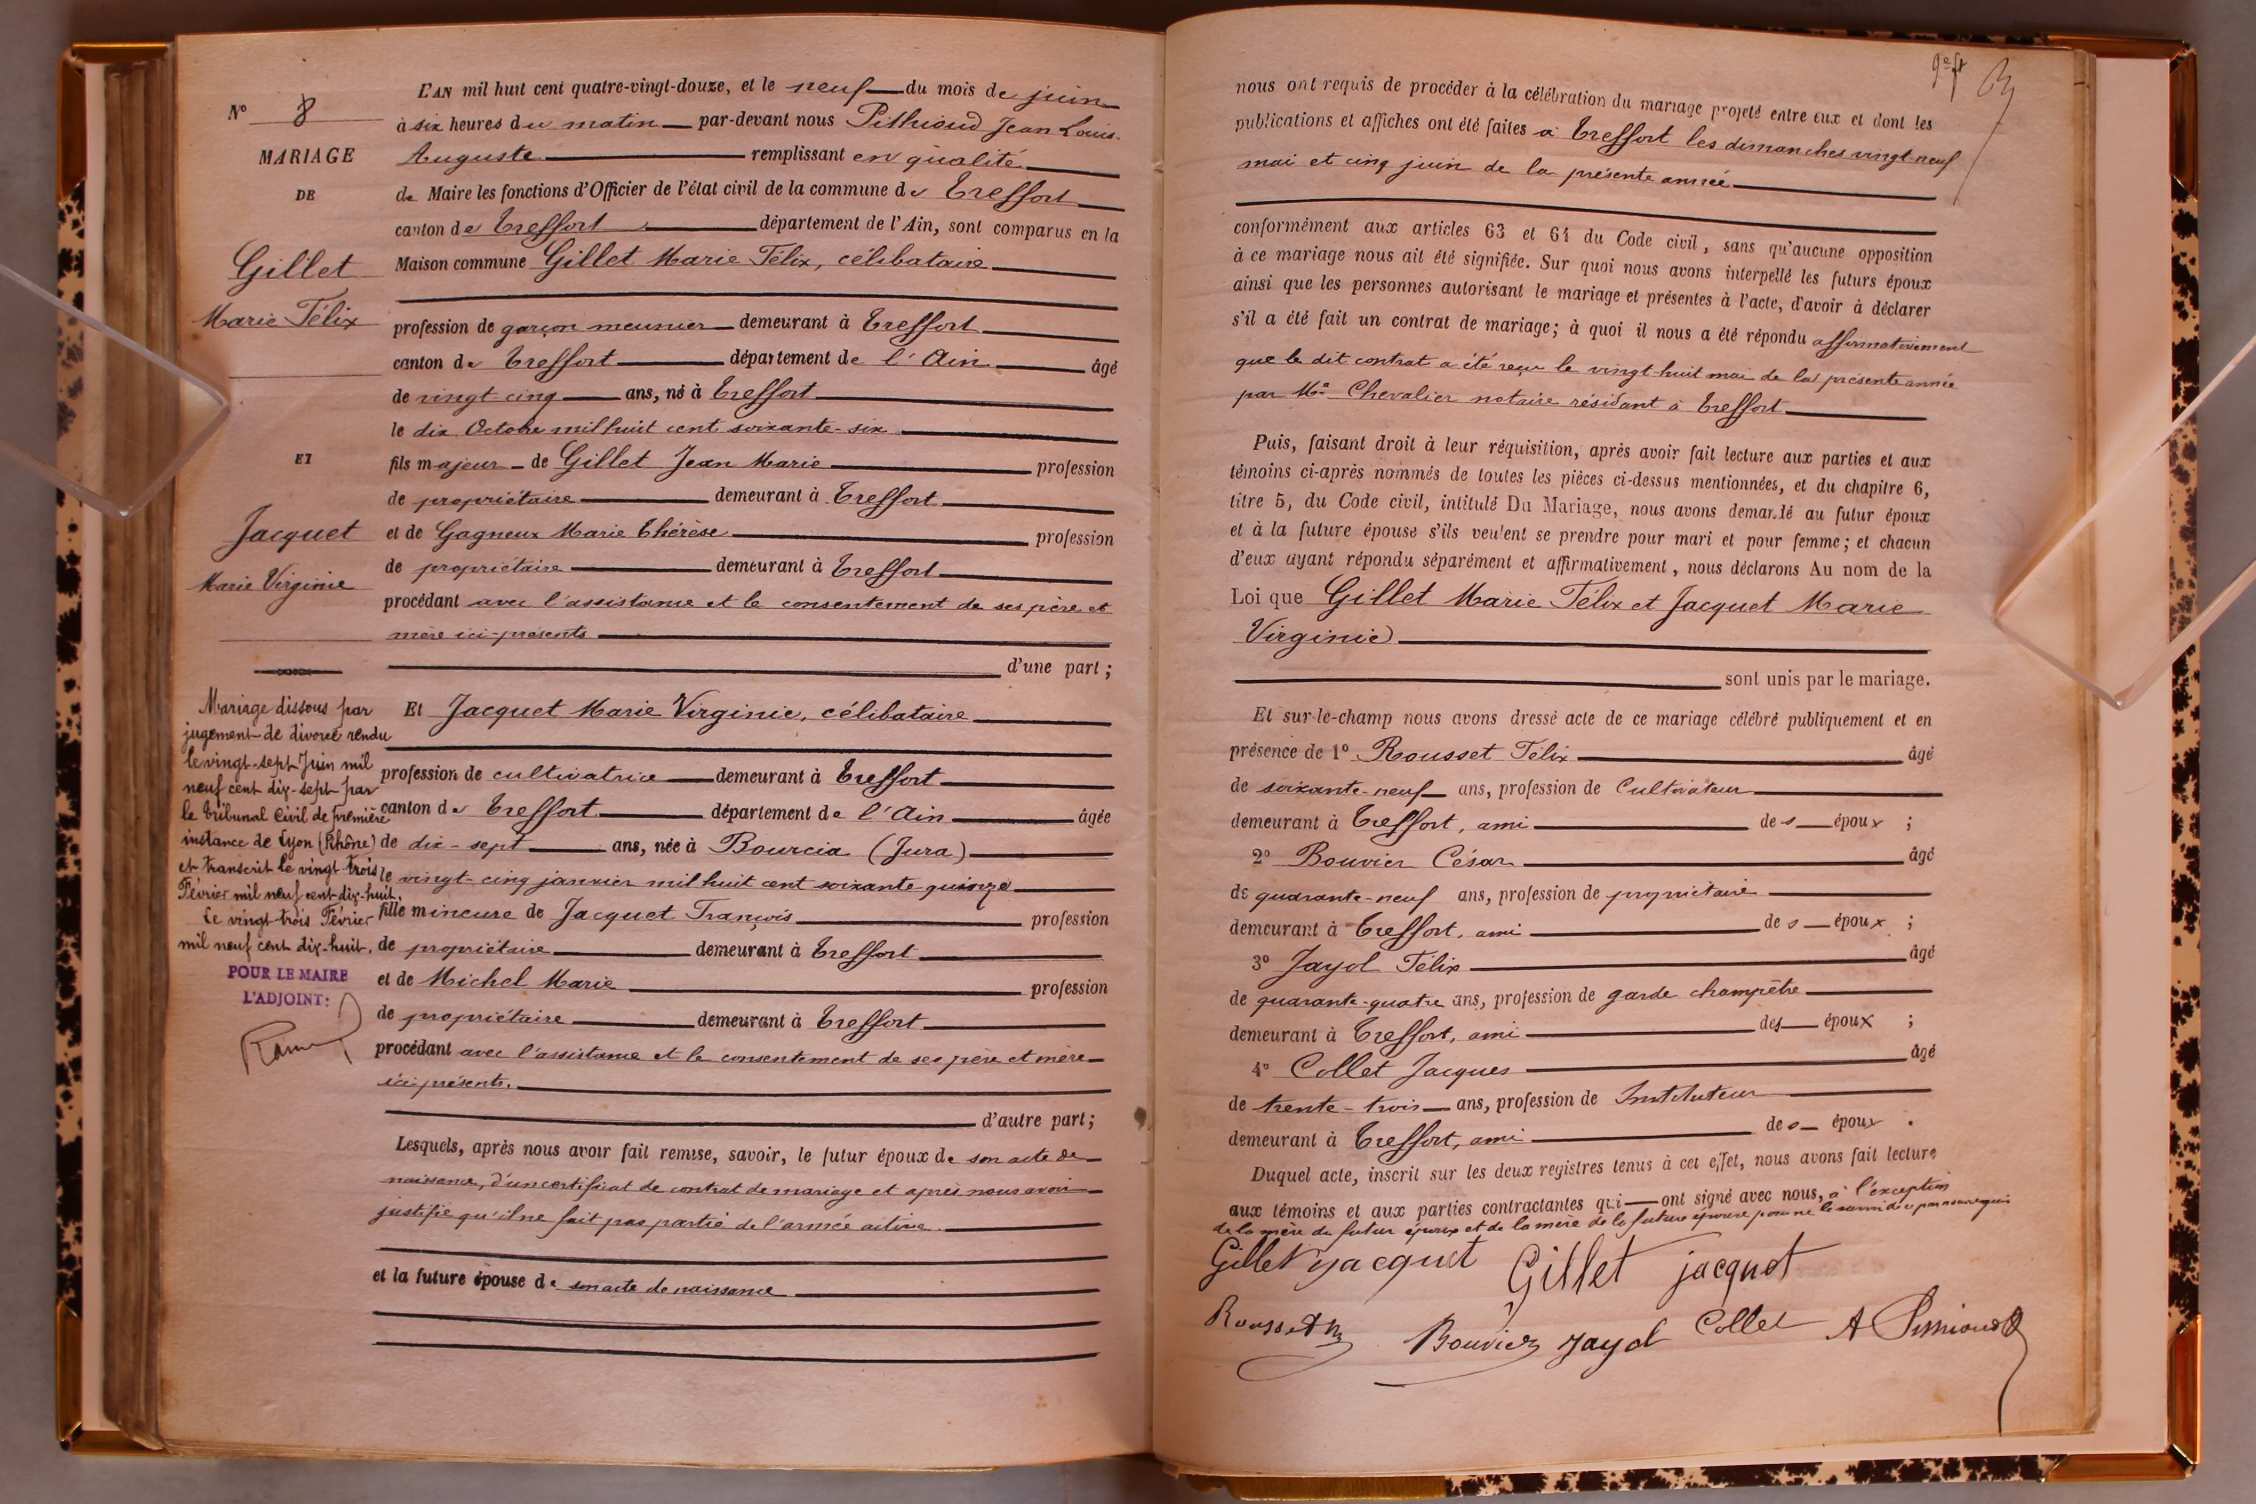 N° 8
MARIAGE
DE
Gillet
Marie Félix
ET
Jacquet
Marie Virginie
Mariage dissous par
jugement de divorce rendu
le vingt-sept Juin mil
neuf cent dix-sept par
le Tribunal Civil de première
instance de Lyon (Rhône)
et transcrit le vingt trois
Février mil neuf cent dix-huit.
Le vingt-trois Février
mil neuf cent dix-huit.
POUR LE MAIRE
L'ADJOINT:
L'AN mil huit cent quatre-vingt-douze, et le neuf du mois de juin
à six heures du matin par-devant nous Pithioud Jean Louis
Auguste remplissant en qualité
de Maire les fonctions d'Officier de l'état civil de la commune de Treffort
canton de Treffort département de l'Ain, sont comparus en la
Maison commune Gillet Marie Félix, célibataire
profession de garçon meunier demeurant à Treffort
canton de Treffort département de l'Ain âgé
de vingt-cinq ans, né à Treffort
le dix Octobre mil huit cent soixante-six
fils majeur de Gillet Jean Marie profession
de propriétaire demeurant à Treffort
et de Gagneux Marie Thérèse profession
de propriétaire demeurant à Treffort
procédant avec l'assistance et le consentement de ses père et
mère ici-présents
d'une part;
Et Jacquet Marie Virginie, célibataire
profession de cultivatrice demeurant à Treffort
canton de Treffort département de l'Ain âgée
de dix-sept ans, née à Bourcia (Jura)
le vingt-cinq janvier mil huit cent soixante-quinze
fille mineure de Jacquet François profession
de propriétaire demeurant à Treffort
et de Michel Marie profession
de propriétaire demeurant à Treffort
procédant avec l'assistance et le consentement de ses père et mère
ici présents.
d'autre part;
Lesquels, après nous avoir fait remise, savoir, le futur époux de son acte de
naissance, d'un certificat de contrat de mariage et après nous avoir
justifié qu'il ne fait pas partie de l'armée active.
et la future épouse de son acte de naissance
nous ont requis de procéder à la célébration du mariage projeté entre eux et dont les
publications et affiches ont été faites à Treffort les dimanches vingt-neuf
mai et cinq juin de la présente année
conformément aux articles 63 et 64 du Code civil, sans qu'aucune opposition
à ce mariage nous ait été signifiée. Sur quoi nous avons interpellé les futurs époux
ainsi que les personnes autorisant le mariage et présentes à l'acte, d'avoir à déclarer
s'il a été fait un contrat de mariage; à quoi il nous a été répondu affirmativement
que le dit contrat a été reçu le vingt-huit mai de la présente année
par Me Chevalier notaire résidant à Treffort
Puis, faisant droit à leur réquisition, après avoir fait lecture aux parties et aux
témoins ci-après nommés de toutes les pièces ci-dessus mentionnées, et du chapitre 6,
titre 5, du Code civil, intitulé Du Mariage, nous avons demandé au futur époux
et à la future épouse s'ils veulent se prendre pour mari et pour femme; et chacun
d'eux ayant répondu séparément et affirmativement, nous déclarons Au nom de la
Loi que Gillet Marie Félix et Jacquet Marie
Virginie
sont unis par le mariage.
Et sur-le-champ nous avons dressé acte de ce mariage célébré publiquement et en
présence de 1° Rousset Félix âgé
de soixante-neuf ans, profession de Cultivateur
demeurant à Treffort, ami des époux ;
2° Bouvier César âgé
de quarante-neuf ans, profession de propriétaire
demeurant à Treffort, ami des époux ;
3° Jayol Félix âgé
de quarante-quatre ans, profession de garde champêtre
demeurant à Treffort, ami des époux ;
4° Collet Jacques âgé
de trente-trois ans, profession de Instituteur
demeurant à Treffort, ami des époux .
Duquel acte, inscrit sur les deux registres tenus à cet effet, nous avons fait lecture
aux témoins et aux parties contractantes qui ont signé avec nous, à l'exception
de la mère du futur époux et de la mère de la future épouse pour ne le savoir de ce par nous requis
Gillet jacquet Gillet jacquet
Rousset Bouvier Jayol Collet A Pithioud